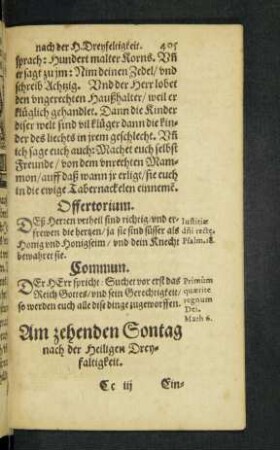 nach der H. Dreyfeltigkeit. 405
sprach: Hundert malter Korns. Vñ
er sagt zu jm: Nim deinen Zedel/ vnd
schreib Achtzig. Vnd der Herr lobet
den vngerechten Haußhalter/ weil er
klüglich gehandlet. Dann die Kinder
diser welt sind vil klüger dann die kin-
der des liechts in jrem geschlecht. Vñ
ich sage euch auch: Machet euch selbst
Freunde/ von dem vnrechten Mam-
mon/ auff daß wann jr erligt/ sie euch
in die ewige Tabernackelen einnemē.
Offertorium.
DEß Herren vrtheil sind richtig/ vnd er-
frewen die hertzen/ ja sie sind süsser als
Honig vnd Honigseim/ vnd dein Knecht
bewahret sie.
Iustitiæ
dñi rectę.
Psalm. 18.
Commun.
DEr HErr spricht: Suchet vor erst das
Reich Gottes/ vnd sein Gerechtigkeit/
so werden euch alle dise dinge zugeworffen.
Primùm
quærite
regnum
Dei.
Math 6.
Am zehenden Sontag
nach der Heiligen Drey-
faltigkeit.
Cc iij Ein-